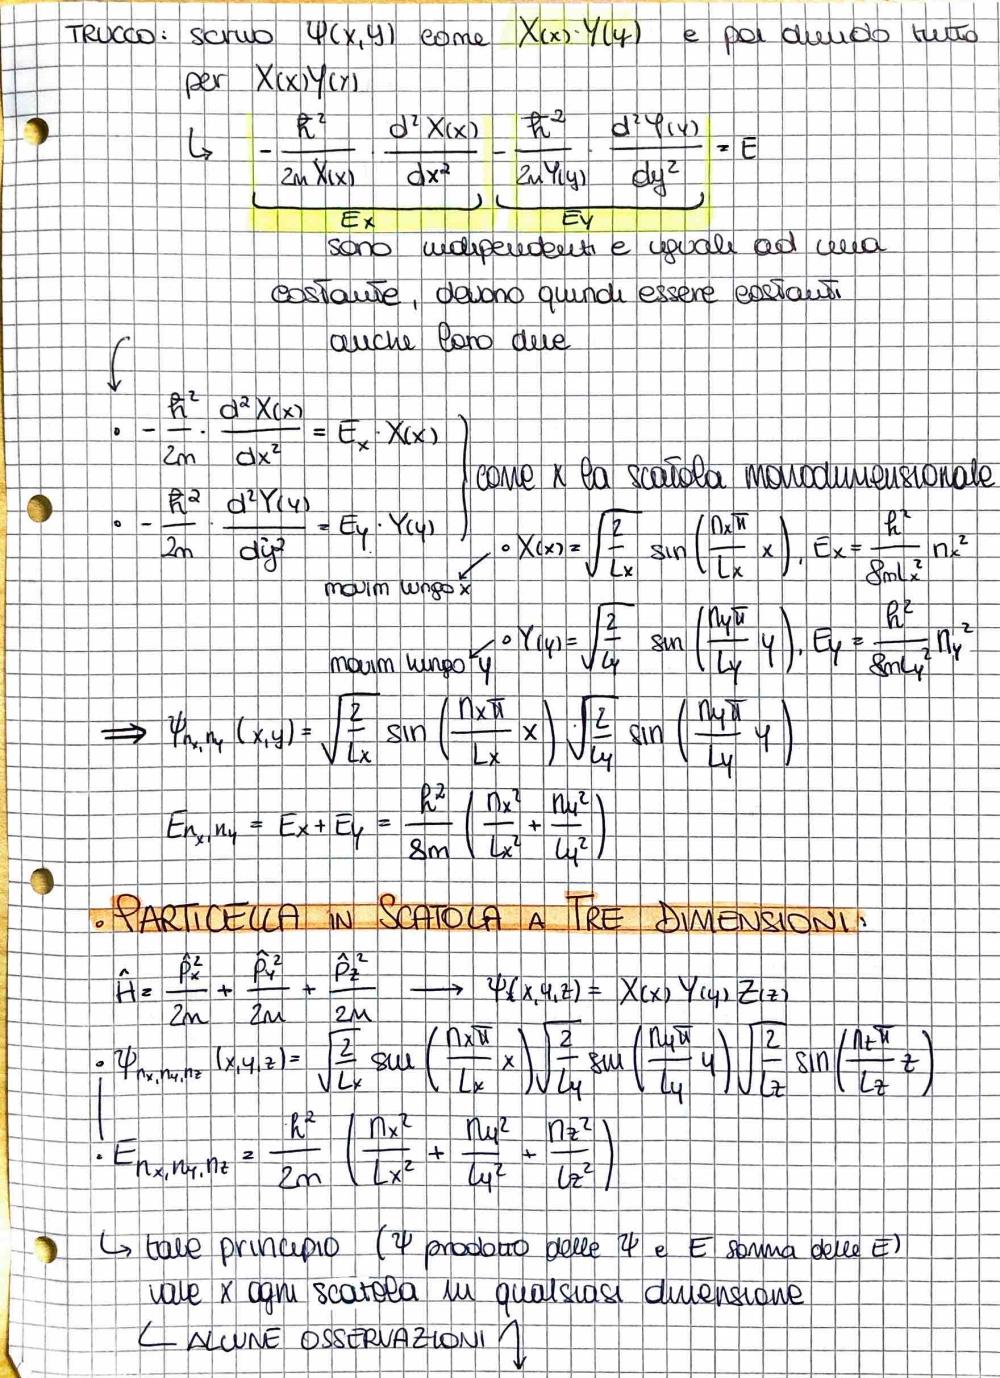 TRUCCO: scrivo Ψ(x,y) come X(x)·Y(y) e poi divido tutto
per X(x)Y(y)
↳ -ħ²/2m X(x) · d²X(x)/dx² - ħ²/2m Y(y) · d²Y(y)/dy² = E
Ex Ey
sono indipendenti e uguali ad una
costante, devono quindi essere costanti
anche loro due
• -ħ²/2m · d²X(x)/dx² = Ex · X(x)
come x la scatola monodimensionale
• -ħ²/2m · d²Y(y)/dy² = Ey · Y(y)
∘ X(x) = √(2/Lx) sin (nxπ/Lx x), Ex = h²/8mLx² nx²
movim lungo x
∘ Y(y) = √(2/Ly) sin (nyπ/Ly y), Ey = h²/8mLy² ny²
movim lungo y
⇒ Ψnx,ny (x,y) = √(2/Lx) sin (nxπ/Lx x) √(2/Ly) sin (nyπ/Ly y)
Enx,ny = Ex + Ey = h²/8m (nx²/Lx² + ny²/Ly²)
• PARTICELLA IN SCATOLA A TRE DIMENSIONI:
Ĥ = p̂x²/2m + p̂y²/2m + p̂z²/2m → Ψ(x,y,z) = X(x) Y(y) Z(z)
• Ψnx,ny,nz (x,y,z) = √(2/Lx) sin (nxπ/Lx x) √(2/Ly) sin (nyπ/Ly y) √(2/Lz) sin (nzπ/Lz z)
• Enx,ny,nz = h²/2m (nx²/Lx² + ny²/Ly² + nz²/Lz²)
↳ tale principio (Ψ prodotto delle Ψ e E somma delle E)
vale x ogni scatola in qualsiasi dimensione
↳ ALCUNE OSSERVAZIONI ↓